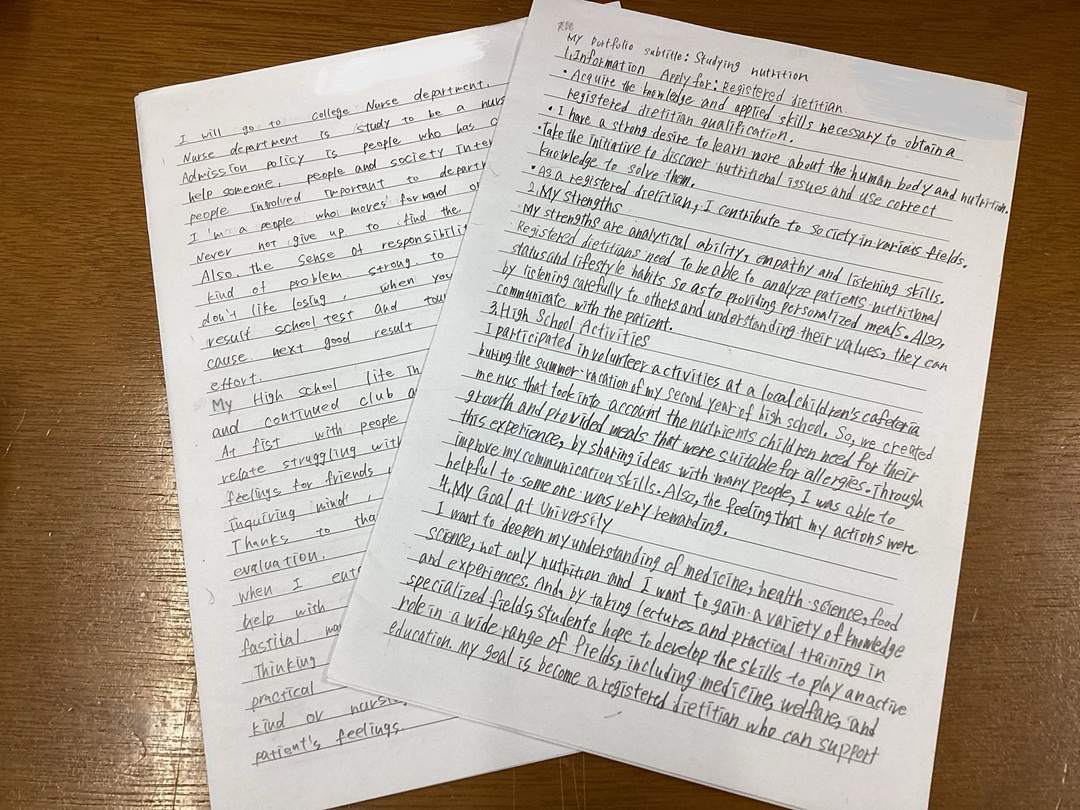 I will go to college Nurse department.
Nurse department is study to be a nurs
Admission policy is people who has
help someone, people and society inte
people involved important to depart
I'm a people who moves forward
Never not give up to find the
Also, the sense of responsibili
kind of problem strong to
don't like losing, when you
result school test and tou
cause next good result
effort.
My High school life in
and continued club a
At fist with people
relate struggling with
feelings for friends,
inquiring mind,
Thanks to tha
evaluation.
when I ent
help with
fastital
Thinking
practical
kind or nursin
patient's feelings.
My Portfolio subtitle: Studying nutrition
1. Information Apply for: Registered dietitian
・Acquire the knowledge and applied skills necessary to obtain a
registered dietitian qualification.
・I have a strong desire to learn more about the human body and nutrition.
・Take the initiative to discover nutritional issues and use correct
knowledge to solve them.
・As a registered dietitian, I contribute to society in various fields.
2. My strengths
My strengths are analytical ability, empathy and listening skills.
Registered dietitians need to be able to analyze patients nutritional
status and lifestyle habits so as to providing personalized meals. Also,
by listening carefully to others and understanding their values, they can
communicate with the patient.
3. High School Activities
I participated in volunteer activities at a local children's cafeteria
buring the summer vacation of my second year of high school. So, we created
menus that took into account the nutrients children need for their
growth and provided meals that were suitable for allergies. Through
this experience, by sharing ideas with many people, I was able to
improve my communication skills. Also, the feeling that my actions were
helpful to someone was very rewarding.
4. My Goal at University
I want to deepen my understanding of medicine, health science, food
science, not only nutrition and I want to gain a variety of knowledge
and experiences. And, by taking lectures and practical training in
specialized fields, students hope to develop the skills to play an active
role in a wide range of fields, including medicine, welfare, and
education. my goal is become a registered dietitian who can support